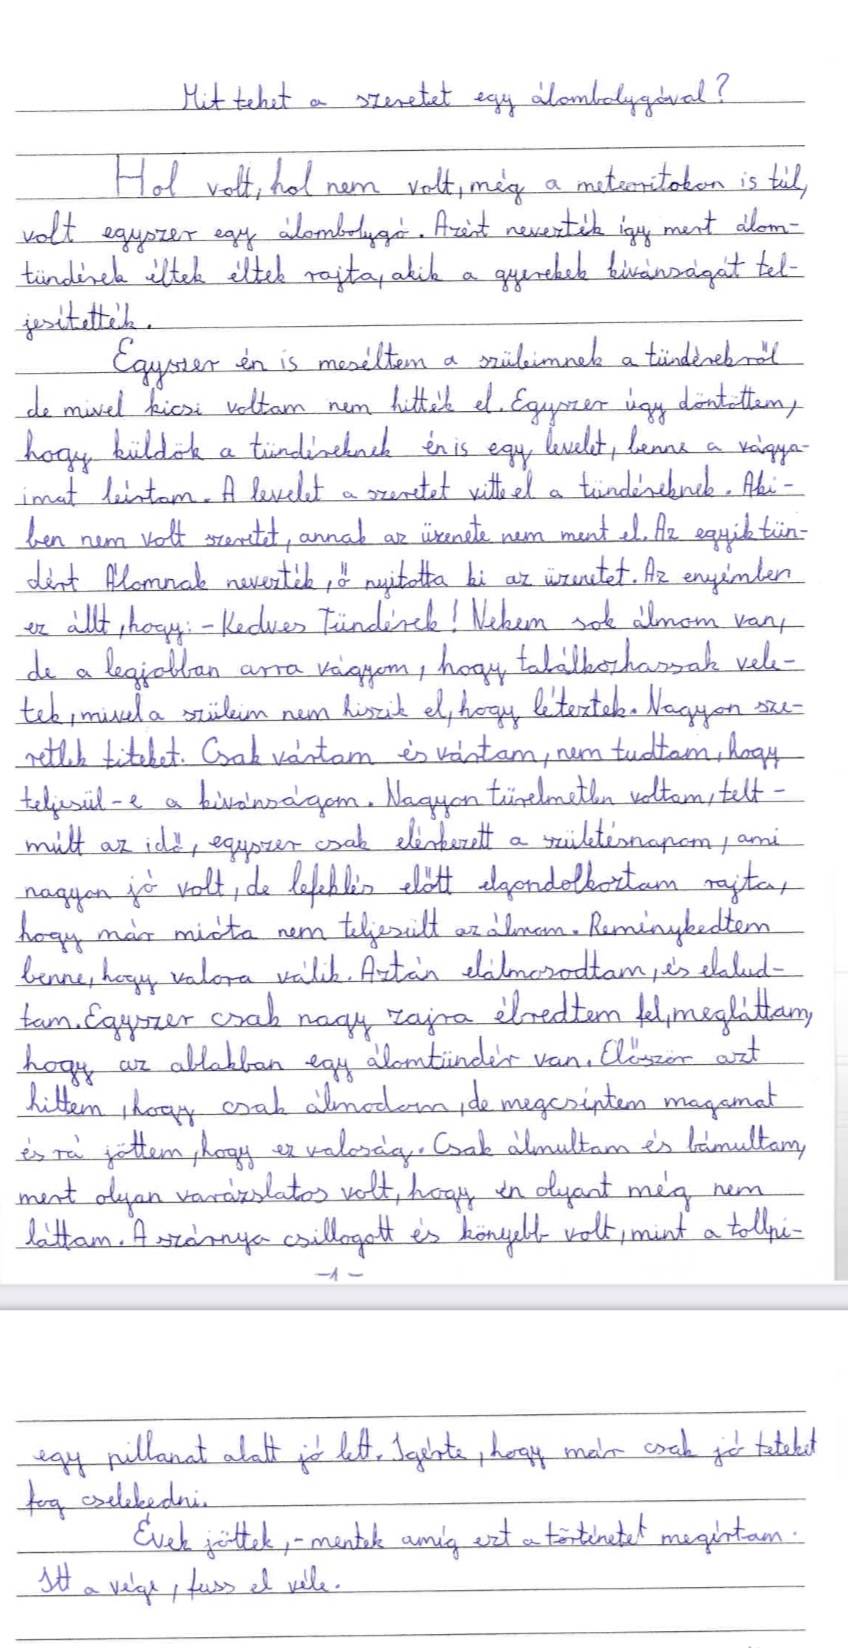 Mit tehet a szeretet egy álombolygóval?
Hol volt, hol nem volt, még a meteoritokon is túl,
volt egyszer egy álombolygó. Azért nevezték így mert álom-
tündérek éltek éltek rajta, akik a gyerekek kivánságát tel-
jesitették.
Egyszer én is meséltem a szüleimnek a tündérekről
de mivel kicsi voltam nem hitték el. Egyszer úgy döntöttem,
hogy küldök a tündéreknek én is egy levelet, benne a vágya-
imat leirtam. A levelet a szeretet vitte el a tündéreknek. Aki-
ben nem volt szeretet, annak az üzenete nem ment el. Az egyik tün-
dért Álomnak nevezték, ő nyitotta ki az üzenetet. Az enyémben
ez állt, hogy: - Kedves Tündérek! Nekem sok álmom van,
de a legjobban arra vágyom, hogy találkozhassak vele-
tek, mivel a szüleim nem hiszik el, hogy léteztek. Nagyon sze-
retlek titeket. Csak vártam és vártam, nem tudtam, hogy
teljesül-e a kivánságom. Nagyon türelmetlen voltam, telt-
múlt az idő, egyszer csak elérkezett a születésnapom, ami
nagyon jó volt, de lefekhlés előtt elgondolkoztam rajta,
hogy már mióta nem teljesült az álmom. Reménykedtem
benne, hogy valora válik. Aztán elálmosodtam, és elalud-
tam. Egyszer csak nagy zajra élredtem fel, megláttam,
hogy az ablakban egy álomtündér van. Először azt
hittem, hogy csak álmodom, de megcsiptem magamat
és rá jöttem, hogy ez valoság. Csak álmultam és bámultam,
mert olyan varázslatos volt, hogy én olyant még nem
láttam. A szárnya csillogott és könyebb volt, mint a tollpi-
-1-
egy pillanat alatt jó lett. Igérte, hogy már csak jó teteket
fog cselekedni.
Évek jöttek, -mentek amig ezt a történetet megirtam.
Itt a vége, fuss el véle.